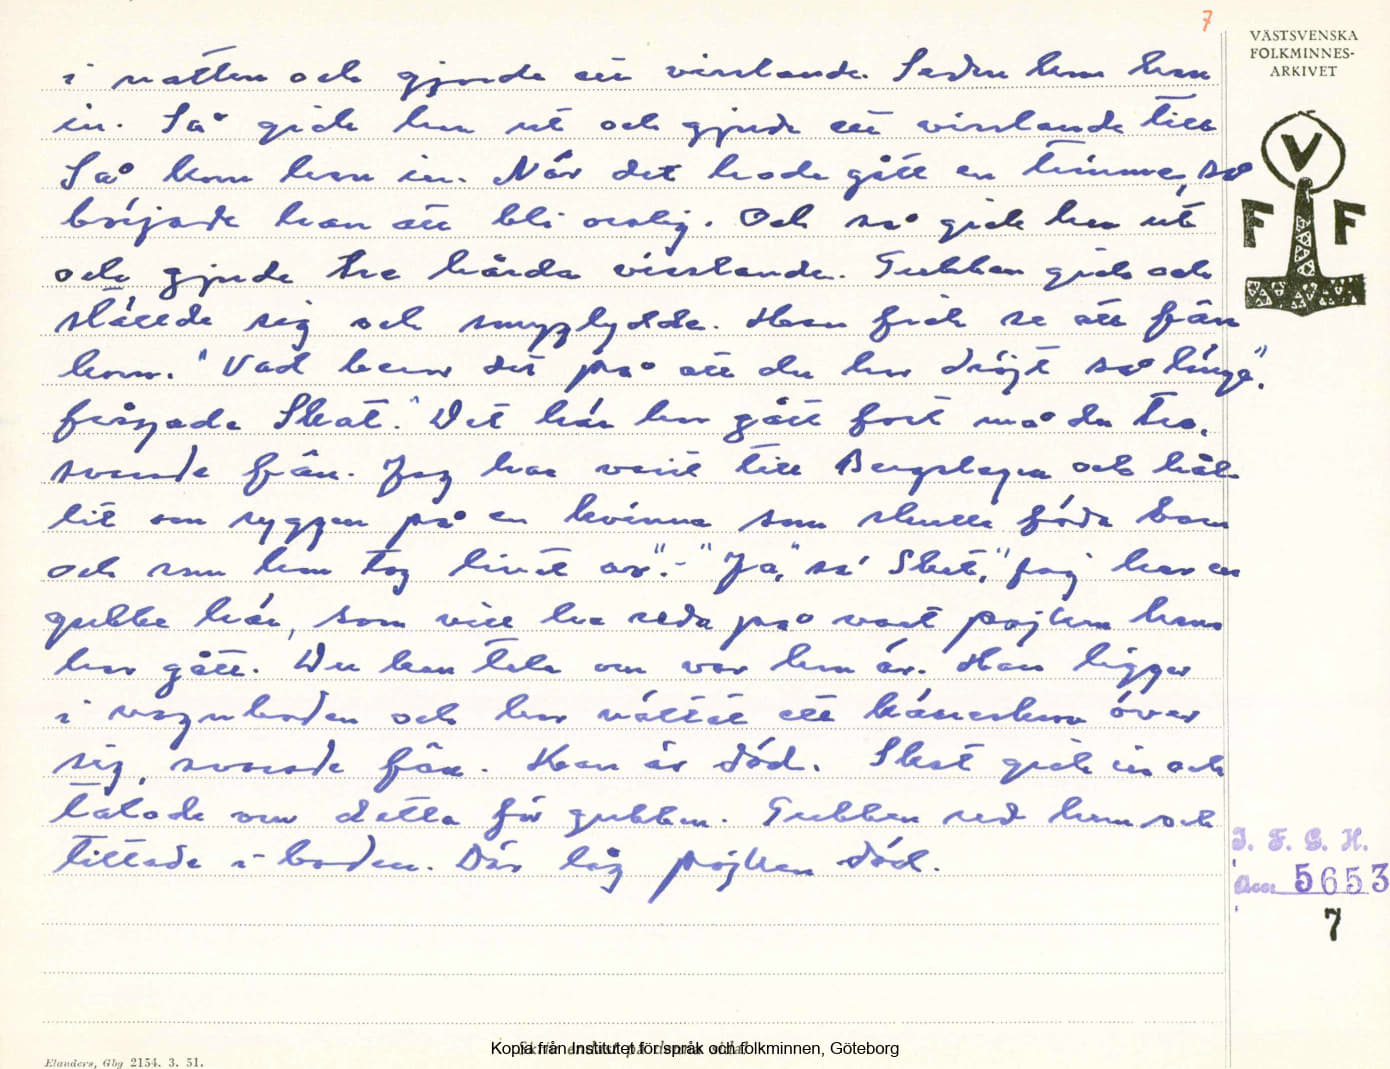 7
VÄSTSVENSKA
FOLKMINNES-
ARKIVET
i natten och gjorde ett visslande. Sedan kom han
in. Så gick han ut och gjorde ett visslande till
Så kom han in. När det hade gått en timme, så
började han att bli orolig. Och så gick han ut
och gjorde tre hårda visslande. Gubben gick och
ställde sig och smyglydde. Han fick se att fån
kom. "Vad beror det på att du har dröjt så länge".
frågade Skat. "Det här har gått fort må du tro,
svarade fån. Jag har varit till Bergslagen och hål-
lit om ryggen på en kvinna som skulle föda barn
och som hon tog livet av". - "Ja," sa' Skat, "jag har en
gubbe här, som vill ha reda på vart pojken hans
har gått. Du kan tala om var han är. Han ligger
i vagnboden och har vältat ett över
sig, svarade fån. Han är död. Skat gick in och
talade om detta för gubben. Gubben red hem och
tittade i boden. Där låg pojken död.
V
F F
I. F. G. H.
Acc. 5653
7
Kopia från Institutet för språk och folkminnen, Göteborg
Elanders, Gbg 2154. 3. 51.